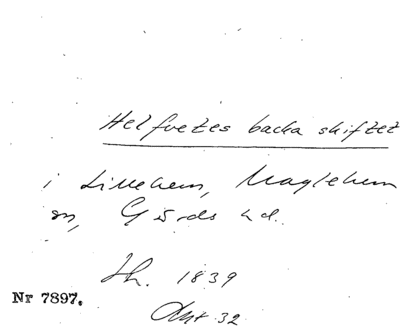 Helfvetes backa skiftet
i Lillehem, Maglehem
sn, Gärds hd.
Sk. 1839
Akt 32
Nr 7897.